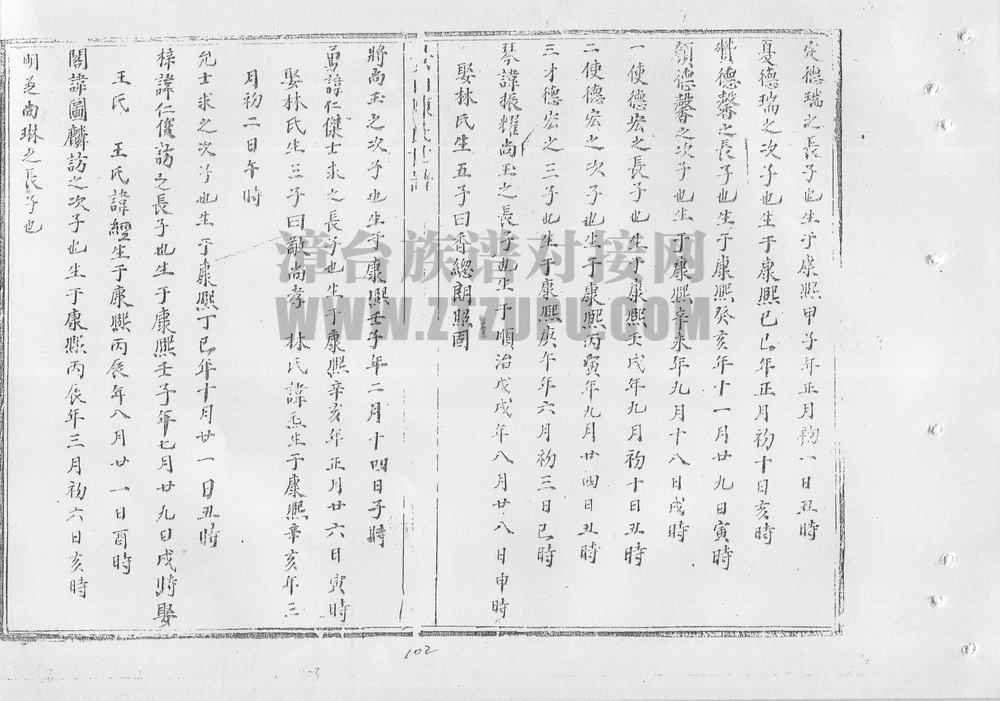 定德瑞之長子也生于康熙甲子年正月初一日丑時
夏德瑞之次子也生于康熙己巳年正月初十日亥時
贊德馨之長子也生于康熙癸亥年十一月廿九日寅時
領德馨之次子也生于康熙辛未年九月十八日戌時
一使德宏之長子也生于康熙壬戌年九月初十日丑時
二使德宏之次子也生于康熙丙寅年九月廿四日丑時
三才德宏之三子也生于康熙庚午年六月初三日巳時
琴諱振耀尚玉之長子也生于順治戊戌年八月廿八日申時
娶林氏生五子曰香總朗照固
將尚玉之次子也生于康熙壬子年二月十四日子時
勇諱仁傑士求之長子也生于康熙辛亥年正月廿六日寅時
娶林氏生三子曰敬尚孝 林氏諱生于康熙辛亥年三
月初二日午時
允士求之次子也生于康熙丁巳年十月廿一日丑時
梓諱仁俊訪之長子也生于康熙壬子年七月廿九日戌時娶
王氏 王氏諱生于康熙丙辰年八月廿一日酉時
閣諱圖麟訪之次子也生于康熙丙辰年三月初六日亥時
明志尚琳之長子也
漳台族谱对接网
WWW.ZTZUPU.COM
102